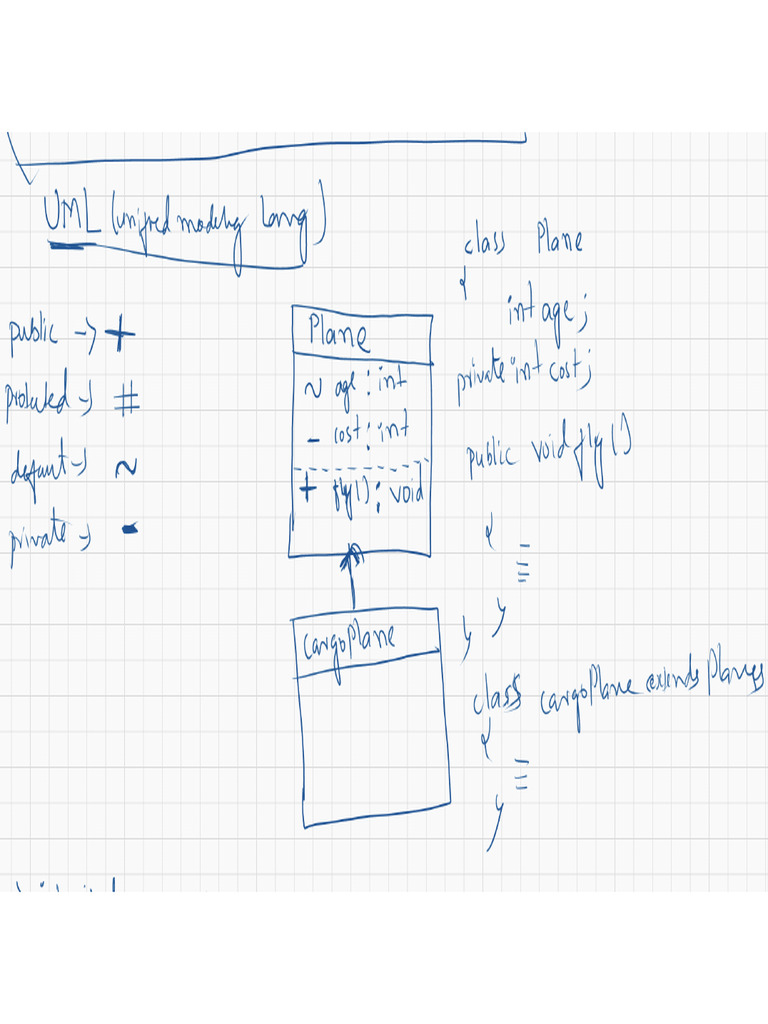 UML (unified modeling Lang)
public -> +
protected -> #
default -> ~
private -> -
Plane
~ age : int
- cost : int
+ fly() : void
CargoPlane
class Plane
{
int age;
private int cost;
public void fly()
{
}
}
class cargoPlane extends Plane
{
}